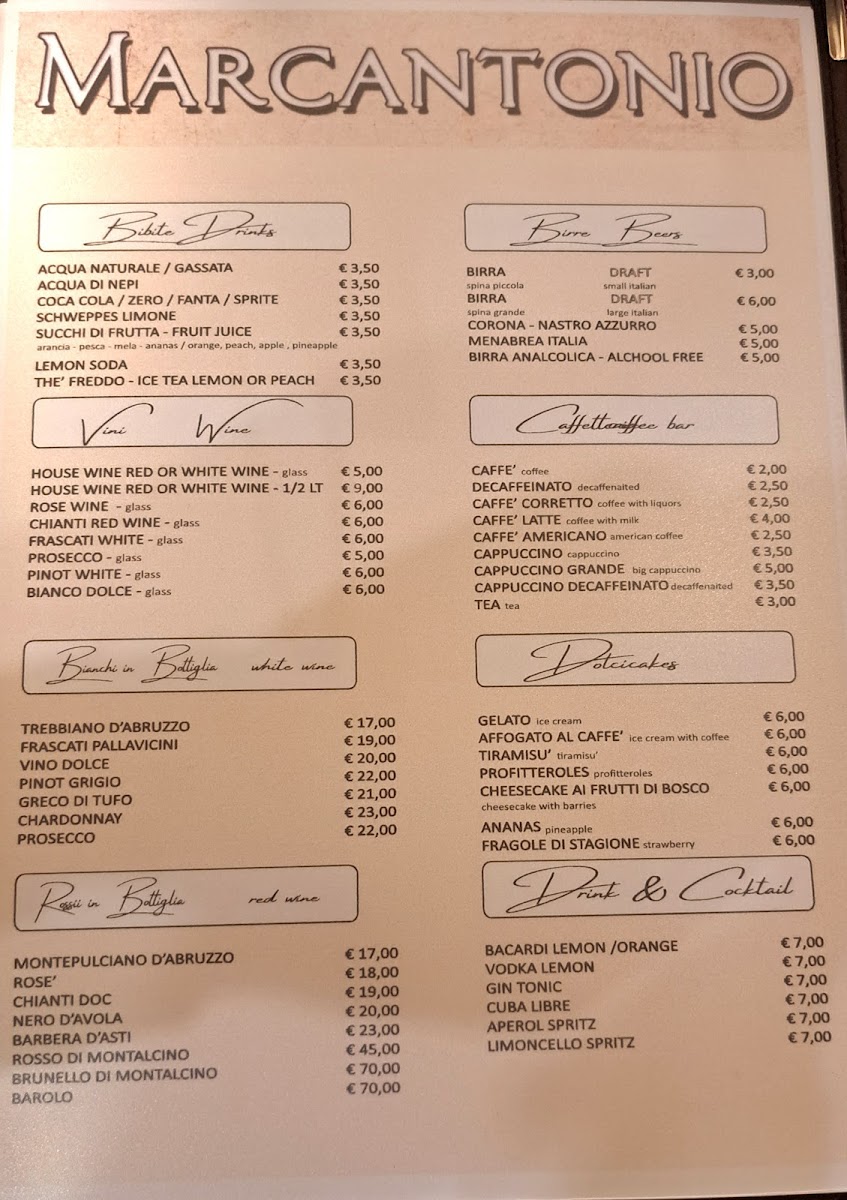 MARCANTONIO
Bibite Drinks
ACQUA NATURALE / GASSATA € 3,50
ACQUA DI NEPI € 3,50
COCA COLA / ZERO / FANTA / SPRITE € 3,50
SCHWEPPES LIMONE € 3,50
SUCCHI DI FRUTTA - FRUIT JUICE € 3,50
arancia - pesca - mela - ananas / orange, peach, apple , pineapple
LEMON SODA € 3,50
THE' FREDDO - ICE TEA LEMON OR PEACH € 3,50
Vini Wine
HOUSE WINE RED OR WHITE WINE - glass € 5,00
HOUSE WINE RED OR WHITE WINE - 1/2 LT € 9,00
ROSE WINE - glass € 6,00
CHIANTI RED WINE - glass € 6,00
FRASCATI WHITE - glass € 6,00
PROSECCO - glass € 5,00
PINOT WHITE - glass € 6,00
BIANCO DOLCE - glass € 6,00
Bianchi in Bottiglia white wine
TREBBIANO D'ABRUZZO € 17,00
FRASCATI PALLAVICINI € 19,00
VINO DOLCE € 20,00
PINOT GRIGIO € 22,00
GRECO DI TUFO € 21,00
CHARDONNAY € 23,00
PROSECCO € 22,00
Rossii in Bottiglia red wine
MONTEPULCIANO D'ABRUZZO € 17,00
ROSE' € 18,00
CHIANTI DOC € 19,00
NERO D'AVOLA € 20,00
BARBERA D'ASTI € 23,00
ROSSO DI MONTALCINO € 45,00
BRUNELLO DI MONTALCINO € 70,00
BAROLO € 70,00
Birre Beers
BIRRA DRAFT € 3,00
spina piccola small italian
BIRRA DRAFT € 6,00
spina grande large italian
CORONA - NASTRO AZZURRO € 5,00
MENABREA ITALIA € 5,00
BIRRA ANALCOLICA - ALCHOOL FREE € 5,00
bar
CAFFE' coffee € 2,00
DECAFFEINATO decaffenaited € 2,50
CAFFE' CORRETTO coffee with liquors € 2,50
CAFFE' LATTE coffee with milk € 4,00
CAFFE' AMERICANO american coffee € 2,50
CAPPUCCINO cappuccino € 3,50
CAPPUCCINO GRANDE big cappuccino € 5,00
CAPPUCCINO DECAFFEINATO decaffenaited € 3,50
TEA tea € 3,00
Dolcicakes
GELATO ice cream € 6,00
AFFOGATO AL CAFFE' ice cream with coffee € 6,00
TIRAMISU' tiramisu' € 6,00
PROFITTEROLES profitteroles € 6,00
CHEESECAKE AI FRUTTI DI BOSCO € 6,00
cheesecake with barries
ANANAS pineapple € 6,00
FRAGOLE DI STAGIONE strawberry € 6,00
Drink & Cocktail
BACARDI LEMON /ORANGE € 7,00
VODKA LEMON € 7,00
GIN TONIC € 7,00
CUBA LIBRE € 7,00
APEROL SPRITZ € 7,00
LIMONCELLO SPRITZ € 7,00